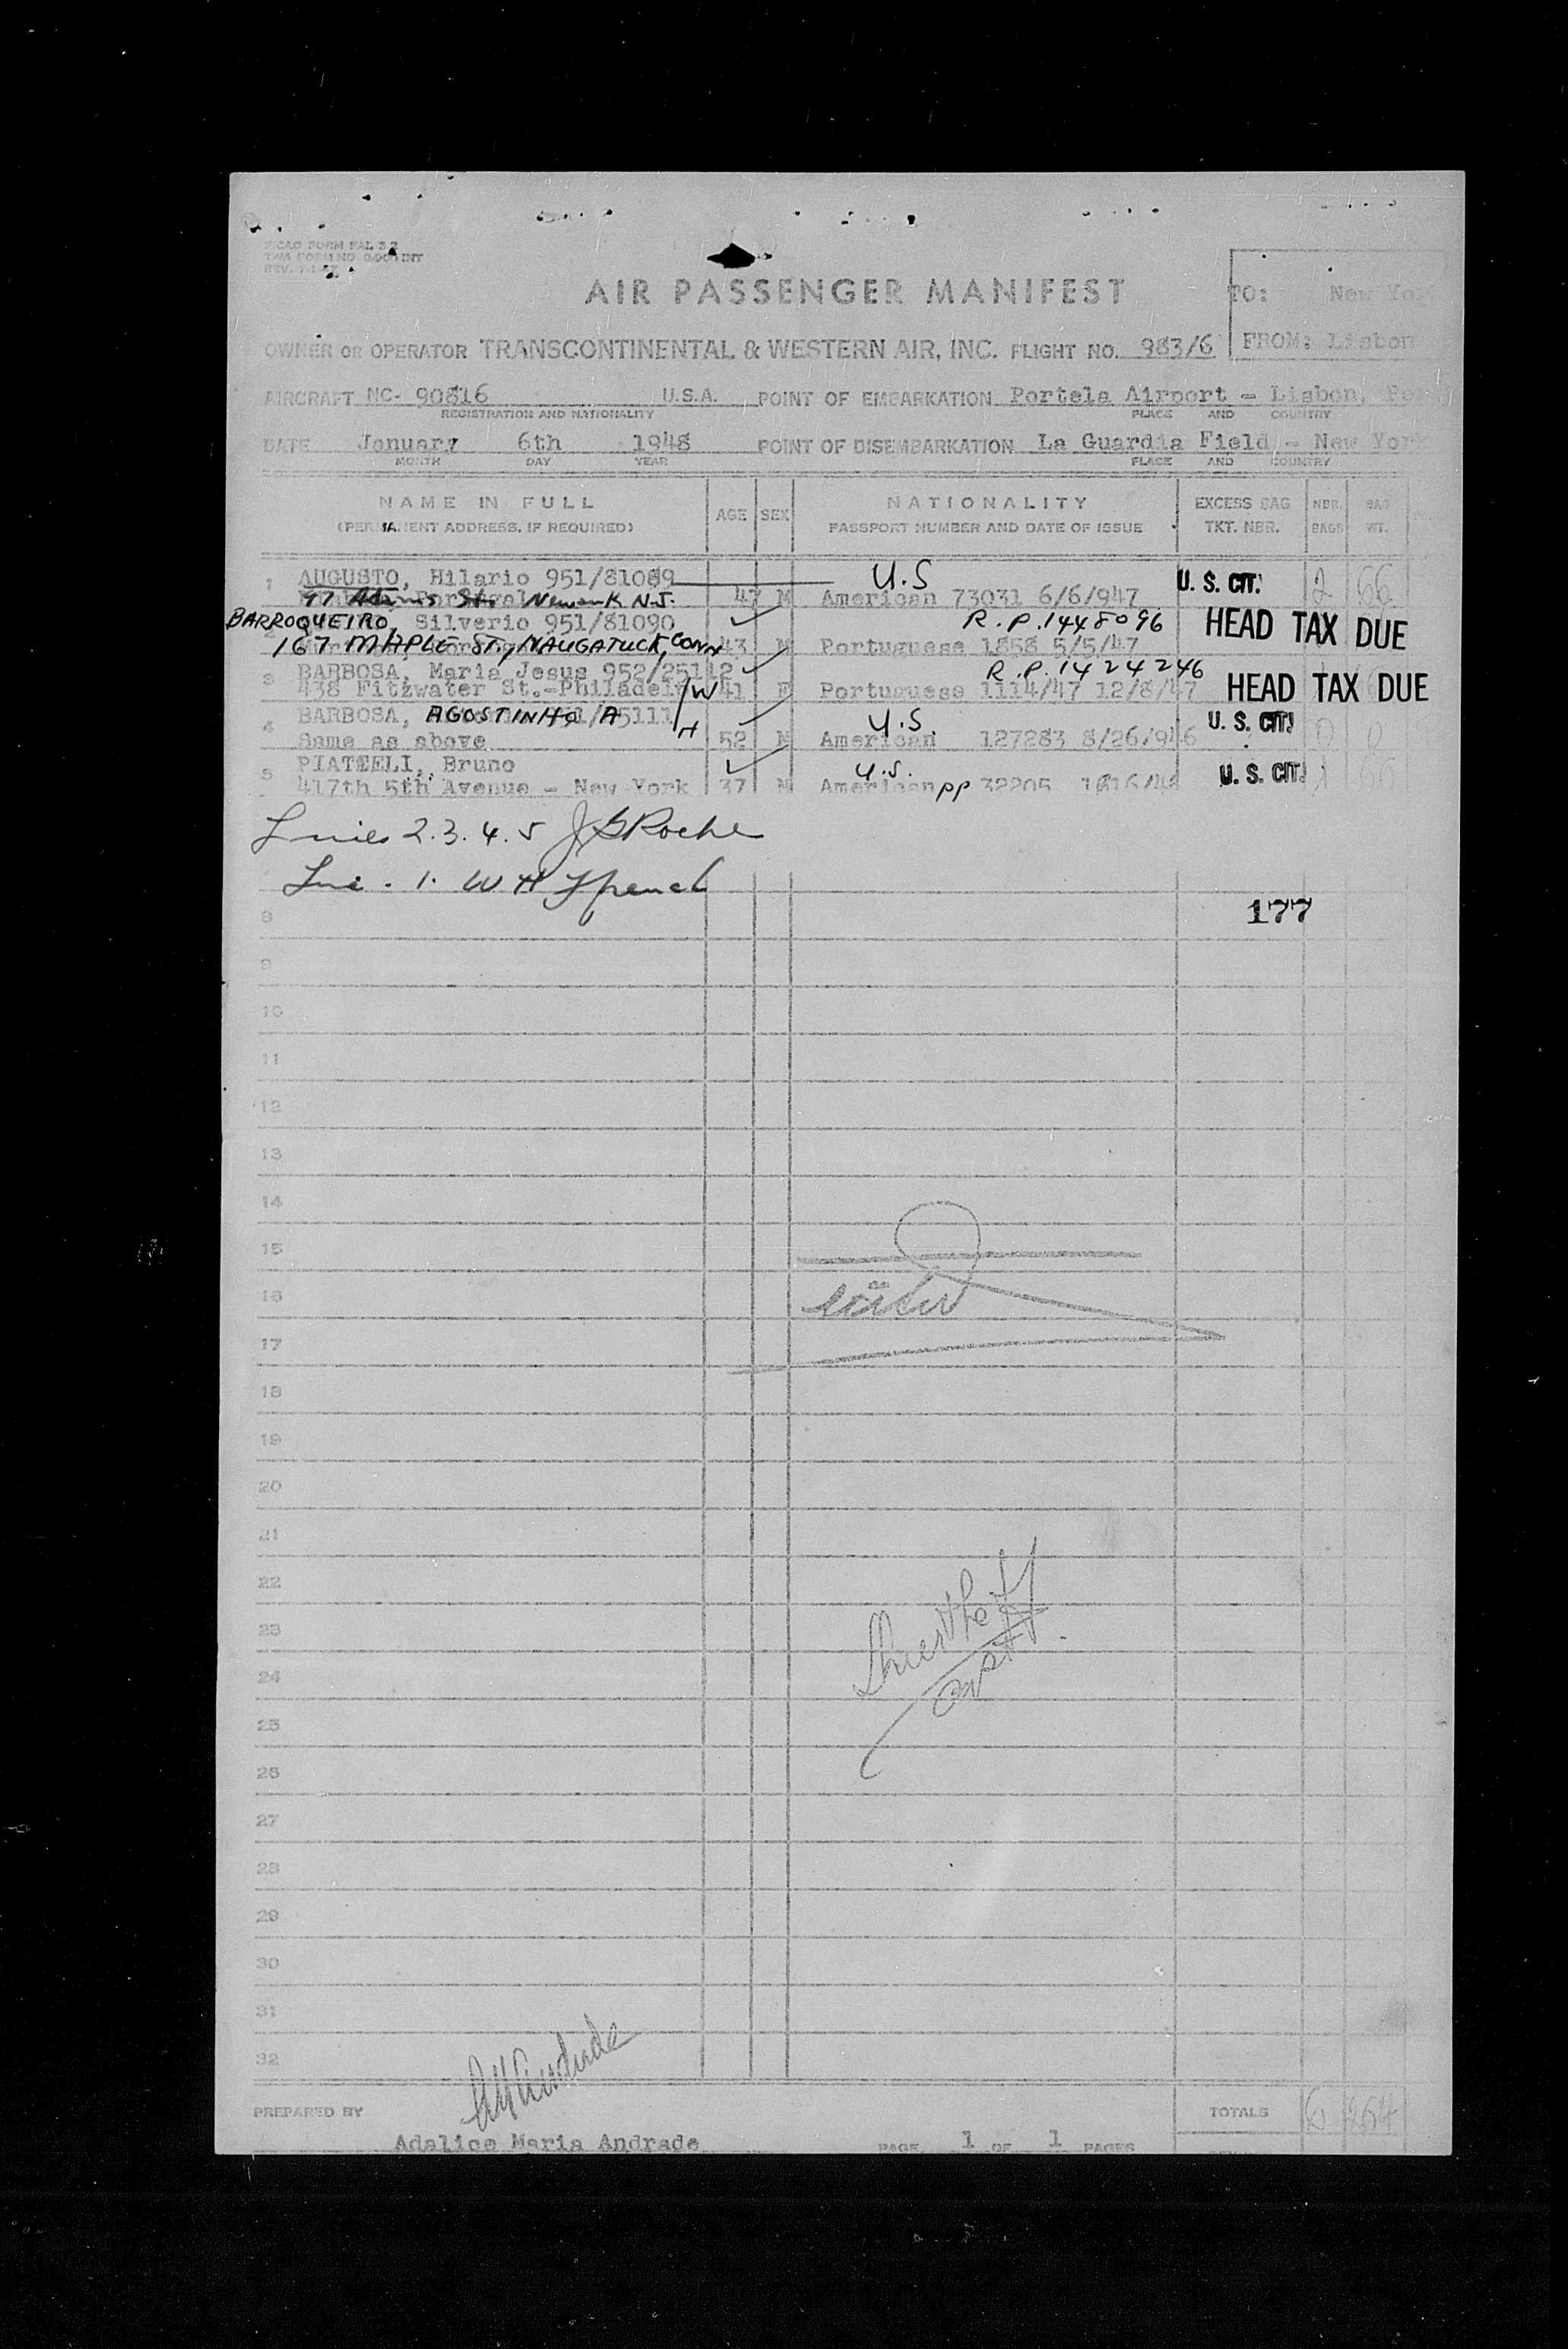 PICAO FORM FAL 3.2
TWA FORM NO. INT
REV.
AIR PASSENGER MANIFEST
TO: New Yor
OWNER OR OPERATOR TRANSCONTINENTAL & WESTERN AIR, INC. FLIGHT NO. 983/6
FROM: Lisbon
AIRCRAFT NC- 90816 U.S.A. POINT OF EMBARKATION Portela Airport - Lisbon, Por
REGISTRATION AND NATIONALITY PLACE AND COUNTRY
DATE January 6th 1948 POINT OF DISEMBARKATION La Guardia Field - New York
MONTH DAY YEAR PLACE AND COUNTRY
NAME IN FULL AGE SEX NATIONALITY EXCESS BAG NBR. BAG
(PERMANENT ADDRESS, IF REQUIRED) PASSPORT NUMBER AND DATE OF ISSUE TKT. NBR. BAGS WT.
1 AUGUSTO, Hilario 951/81089 U.S U. S. CIT. 2 66
97 Adams St. Newark N.J. 47 M American 73031 6/6/947
BARROQUEIRO, Silverio 951/81090 R.P. 1448096 HEAD TAX DUE
2 167 MAPLE ST, NAUGATUCK, CONN 43 M Portuguese 1858 5/5/47
3 BARBOSA, Maria Jesus 952/25112 R.P. 1424246
438 Fitzwater St.-Philadel W 41 F Portuguese 1114/47 12/8/47 HEAD TAX DUE
4 BARBOSA, AGOSTINHO A /25111 H U.S. U. S. CIT.
Same as above 52 M American 127283 8/26/946 0 0
5 PIATEELI, Bruno U.S. U. S. CIT.
417th 5th Avenue - New York 37 M American pp 32205 66
Lines 2.3.4.5 J G Roche
Line - 1. W H
177
8
9
10
11
12
13
14
15
16
17
18
19
20
21
22
23
24
25
26
27
28
29
30
31
32
PREPARED BY TOTALS 6 264
Adalice Maria Andrade PAGE 1 OF 1 PAGES